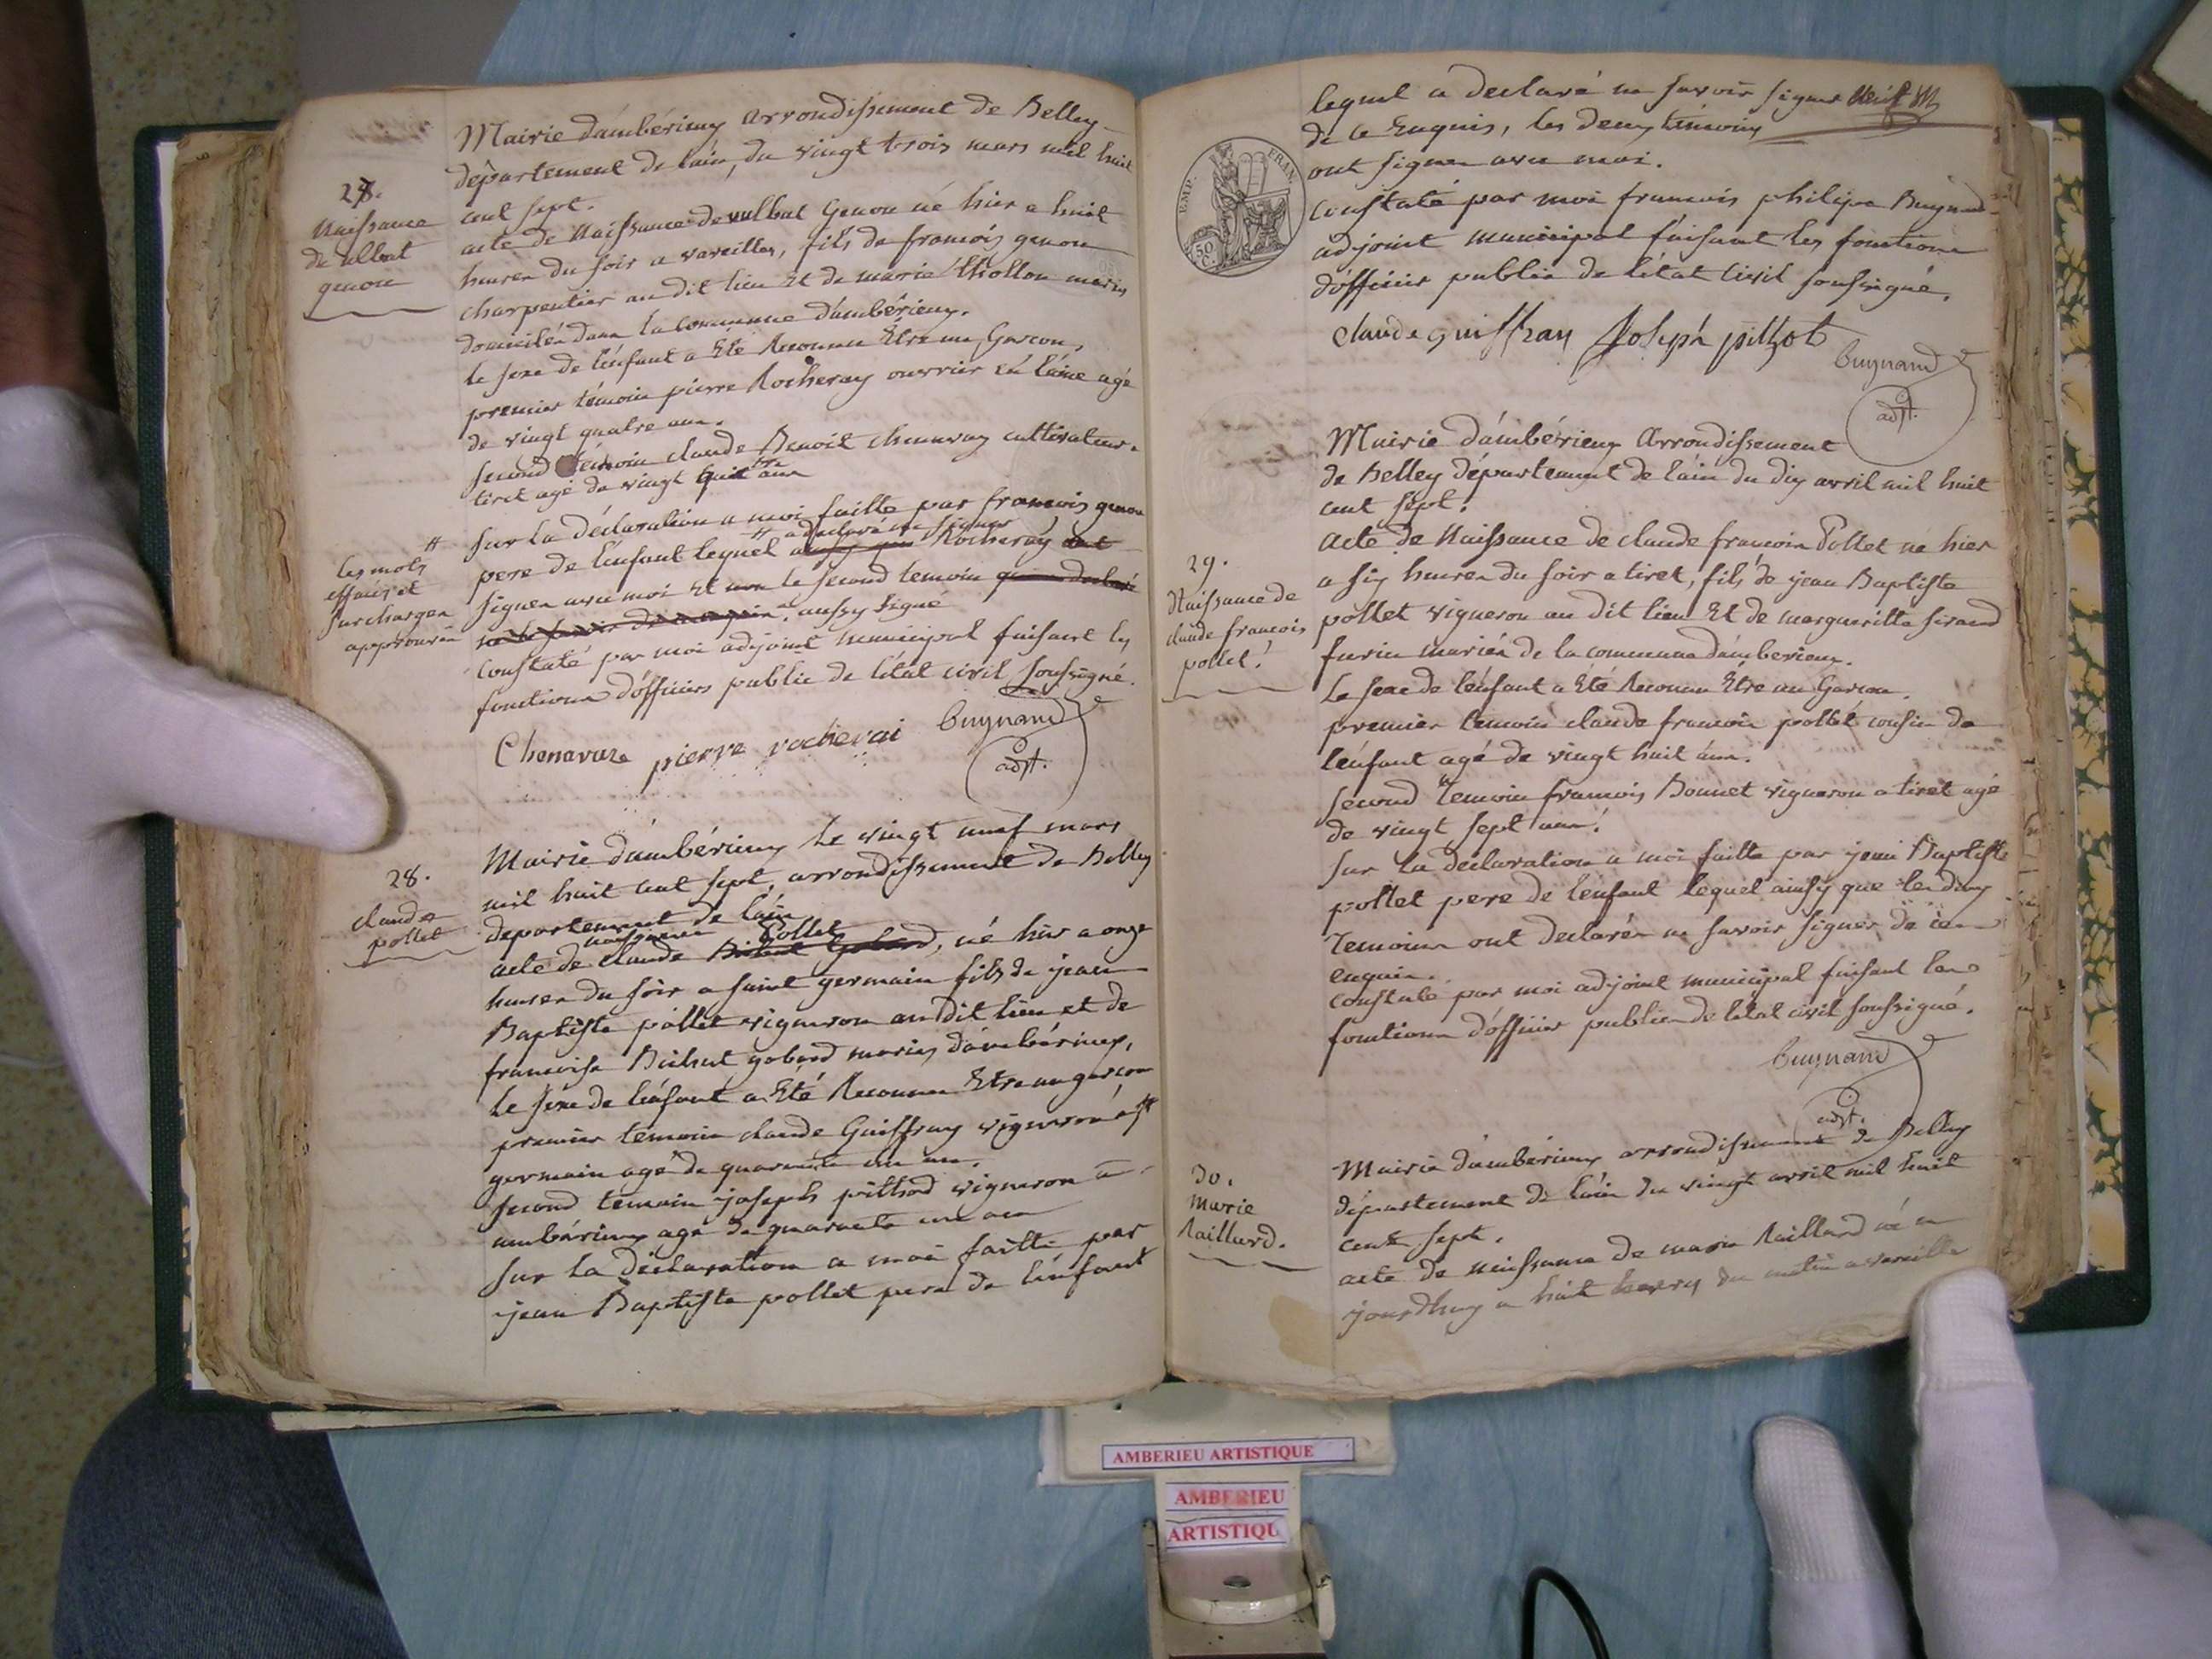 27.
Naissance
de ulbat
genou
Mairie d'ambérieux arrondissement de Belley
département de lain, du vingt trois mars mil huit
cent sept.
acte de Naissance de vulbat Genou né hier a huit
heures du soir a vareilles, fils de francois genou
charpentier au dit lieu Et de marie thollon mariés
domiciliés dans la commune d'ambérieux.
le sexe de lenfant a Eté Reconnu Etre un Garcon,
premier témoin pierre Rocheray ouvrier en laine agé
de vingt quatre ans.
second témoin claude Benoit chenavay cultivateur
tiret agé de vingt huit ans
sur la déclaration a moi faitte par francois genou
pere de lenfant lequel a declaré ne signer Rocheray
signer avec moi Et le second temoin
aussy signé
constaté par moi adjoint municipal faisant les
fonctions d'officier public de létat civil soussigné.
les mots
effacés et
surcharges
approuvés
Chenavaze pierre rocherai buynand
adjt.
28.
claude
pollet
Mairie d'ambérieux le vingt neuf mars
mil huit cent sept, arrondissement de Belley
departement de lain
acte de naissance claude Pollet, né hier a onze
heures du soir a saint germain fils de jean
Baptiste pollet vigneron au dit lieu et de
francoise gobard mariés d'ambérieux,
le sexe de lenfant a Eté Reconnu Etre un garcon
premier temoin claude Guiffray vigneron a st
germain agé de quarante un an.
second temoin joseph pithod vigneron a
ambérieux agé de quarante un an
sur la déclaration a moi faitte par
jean Baptiste pollet pere de lenfant
lequel a declaré ne savoir signer
de ce Enquis, les deux témoins
ont signer avec moi.
EMP. FRAN.
50 C.
constaté par moi francois philipe Buynand
adjoint municipal faisant les fonctions
d'officier public de létat civil soussigné.
claude guiffray Joseph pithot
buynand
adjt.
Mairie d'ambérieux Arrondissement
de Belley département de lain du dix avril mil huit
cent sept.
29.
Naissance de
claude francois
pollet.
acte de Naissance de claude francois Pollet né hier
a six heures du soir a tiret, fils de jean Baptiste
pollet vigneron au dit lieu Et de margueritte siraud
furin mariés de la commune d'amberieux.
Le sexe de lenfant a Eté Reconnu Etre un Garcon.
premier temoin claude francois pollet cousin de
lenfant agé de vingt huit ans.
second temoin francois Bonnet vigneron a tiret agé
de vingt sept ans.
sur la declaration a moi faitte par jean Baptiste
pollet pere de lenfant lequel ainsy que les deux
temoins ont declarés ne savoir signer de ce
enquis.
constaté par moi adjoint municipal faisant les
fonctions d'officier public de letat civil soussigné.
buynand
adjt.
30.
Marie
Raillard.
Mairie d'ambérieux arrondissement de Belley
département de lain du vingt avril mil huit
cent sept.
acte de naissance de marie Raillard né a
jourdhuy a huit heures du matin a vareille
AMBERIEU ARTISTIQUE
AMBERIEU
ARTISTIQU